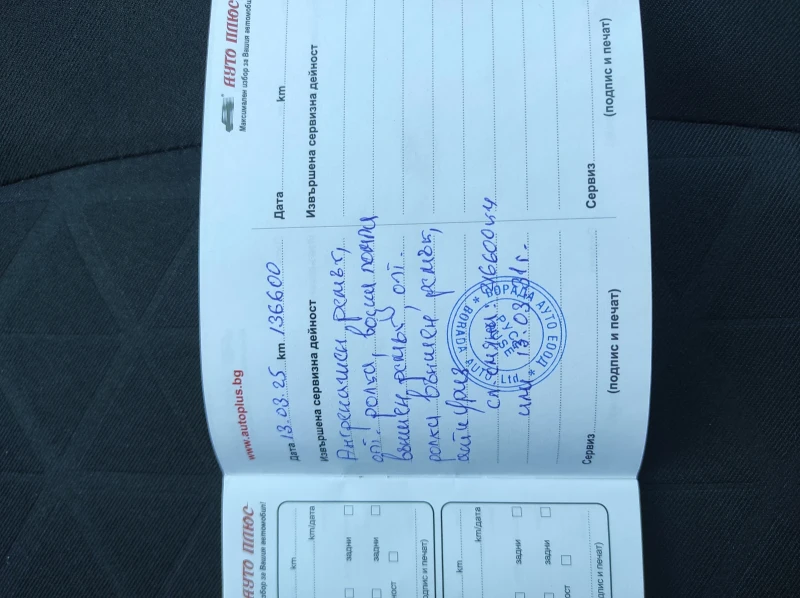 www.autoplus.bg
Дата 13.03.25 km 136600
Извършена сервизна дейност
Ангренажен ремък,
опт. ролка, водна помпа
външен ремък, опт.
ролка външен ремък,
антифриз
сл. смяна: 216600км
или 13.03.31г.
БОРАДА АУТО ЕООД * BORADA
Сервиз
(подпис и печат)
АУТО ПЛЮС
Максимален избор за Вашия автомобил!
Дата km
Извършена сервизна дейност
Сервиз
(подпис и печат)
АУТО ПЛЮС
избор за Вашия автомобил!
km
km/дата
задни
задни
ност
дпис и печат)
km
km/дата
задни
ност
пис и печат)